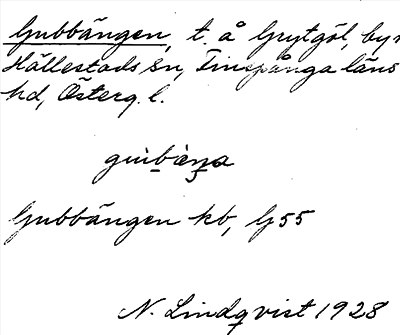 Gubbängen, t. å Grytgöl, byn
Hällestads sn, Finspånga läns
hd, Österg. l.
Gubbängen kb, G55
N. Lindqvist 1928